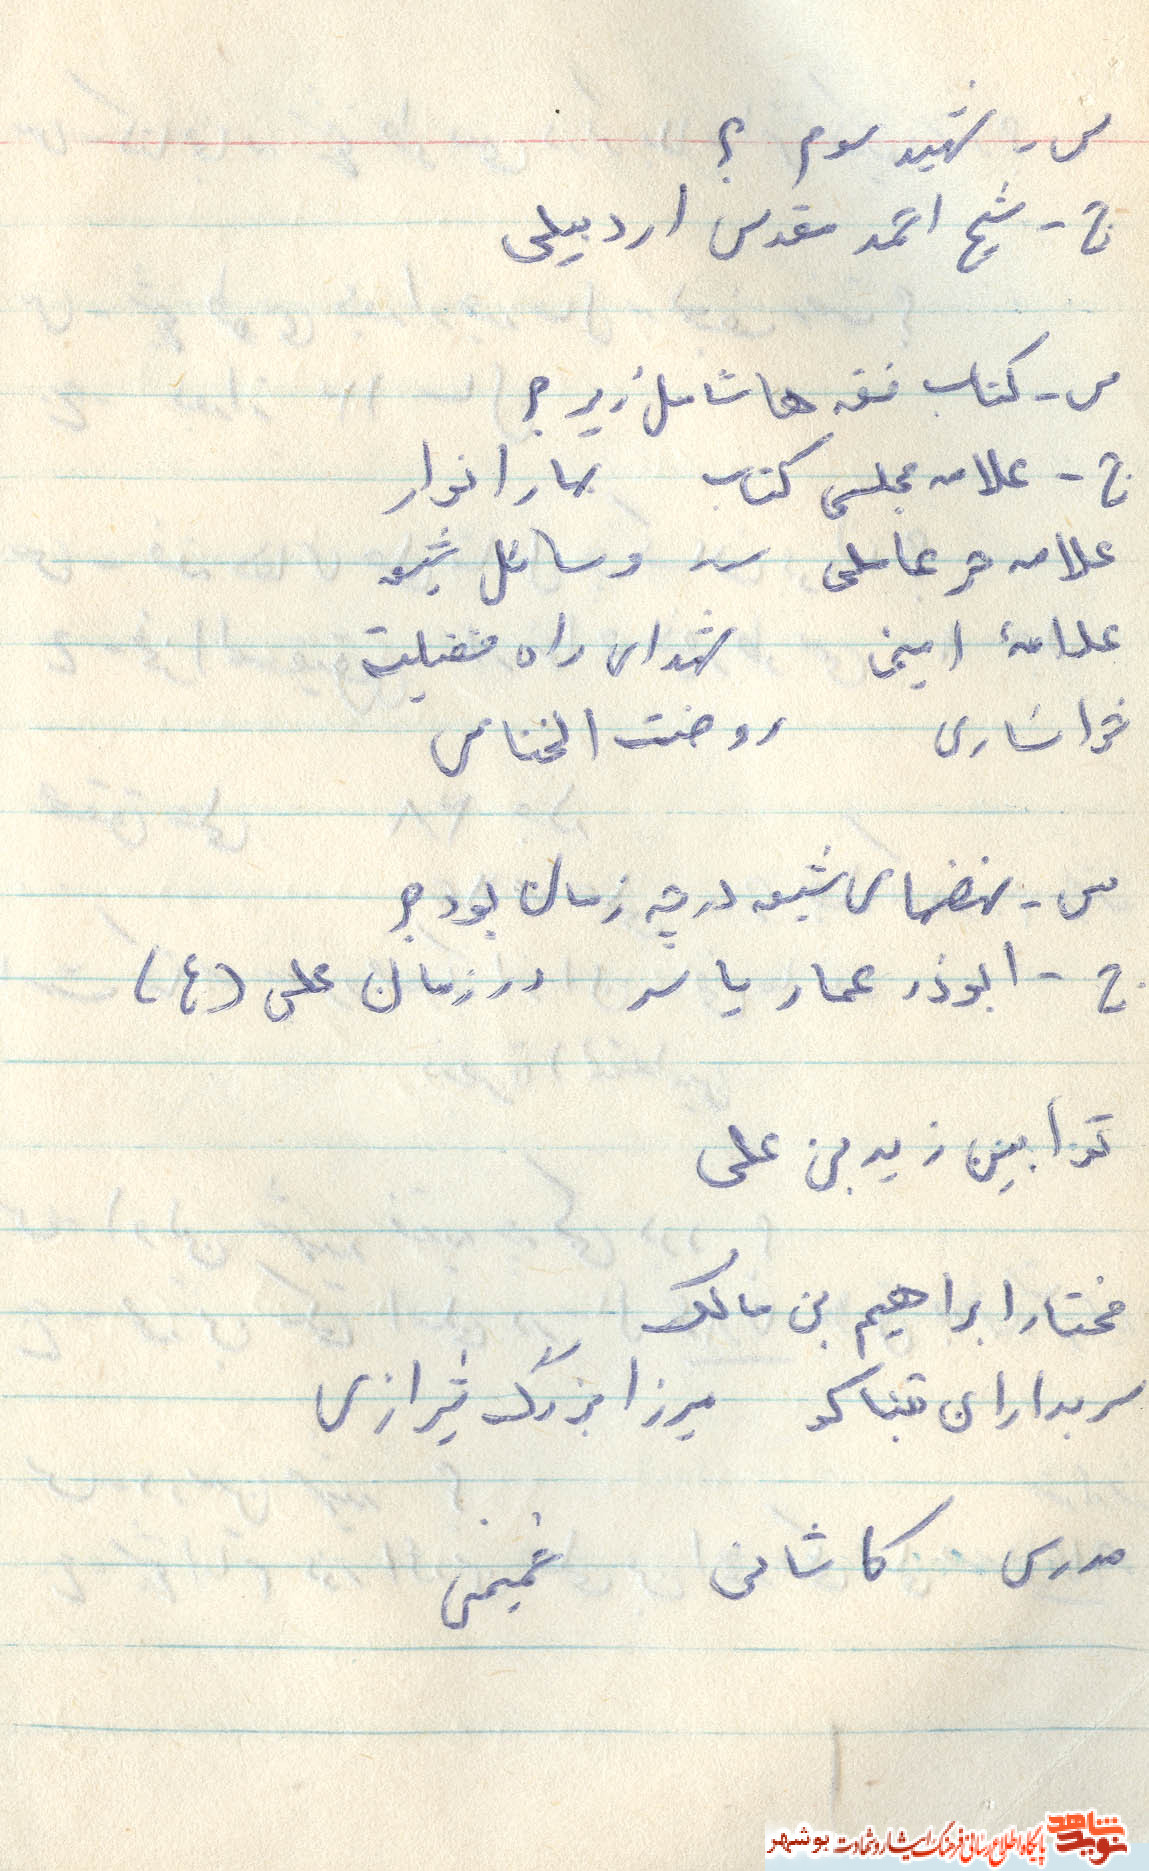 س - شهید سوم ؟
ج - شیخ احمد مقدس اردبیلی
س - کتاب فقه ها شامل زیر ؟
ج - علامه مجلسی کتاب بحار انوار
علامه حر عاملی وسائل شیعه
علامۀ امینی شهدای راه فضیلت
خوانساری روضت الخناس
س - نهضهای شیعه در چه زمان بود ؟
ج - ابوذر عمار یاسر در زمان علی (ع)
توابین زید بن علی
مختار ابراهیم بن مالک
سربداران تنباکو میرزا بزرگ شیرازی
مدرس کاشانی خمینی
نوید شاهد
پایگاه اطلاع رسانی فرهنگ ایثار و شهادت بوشهر